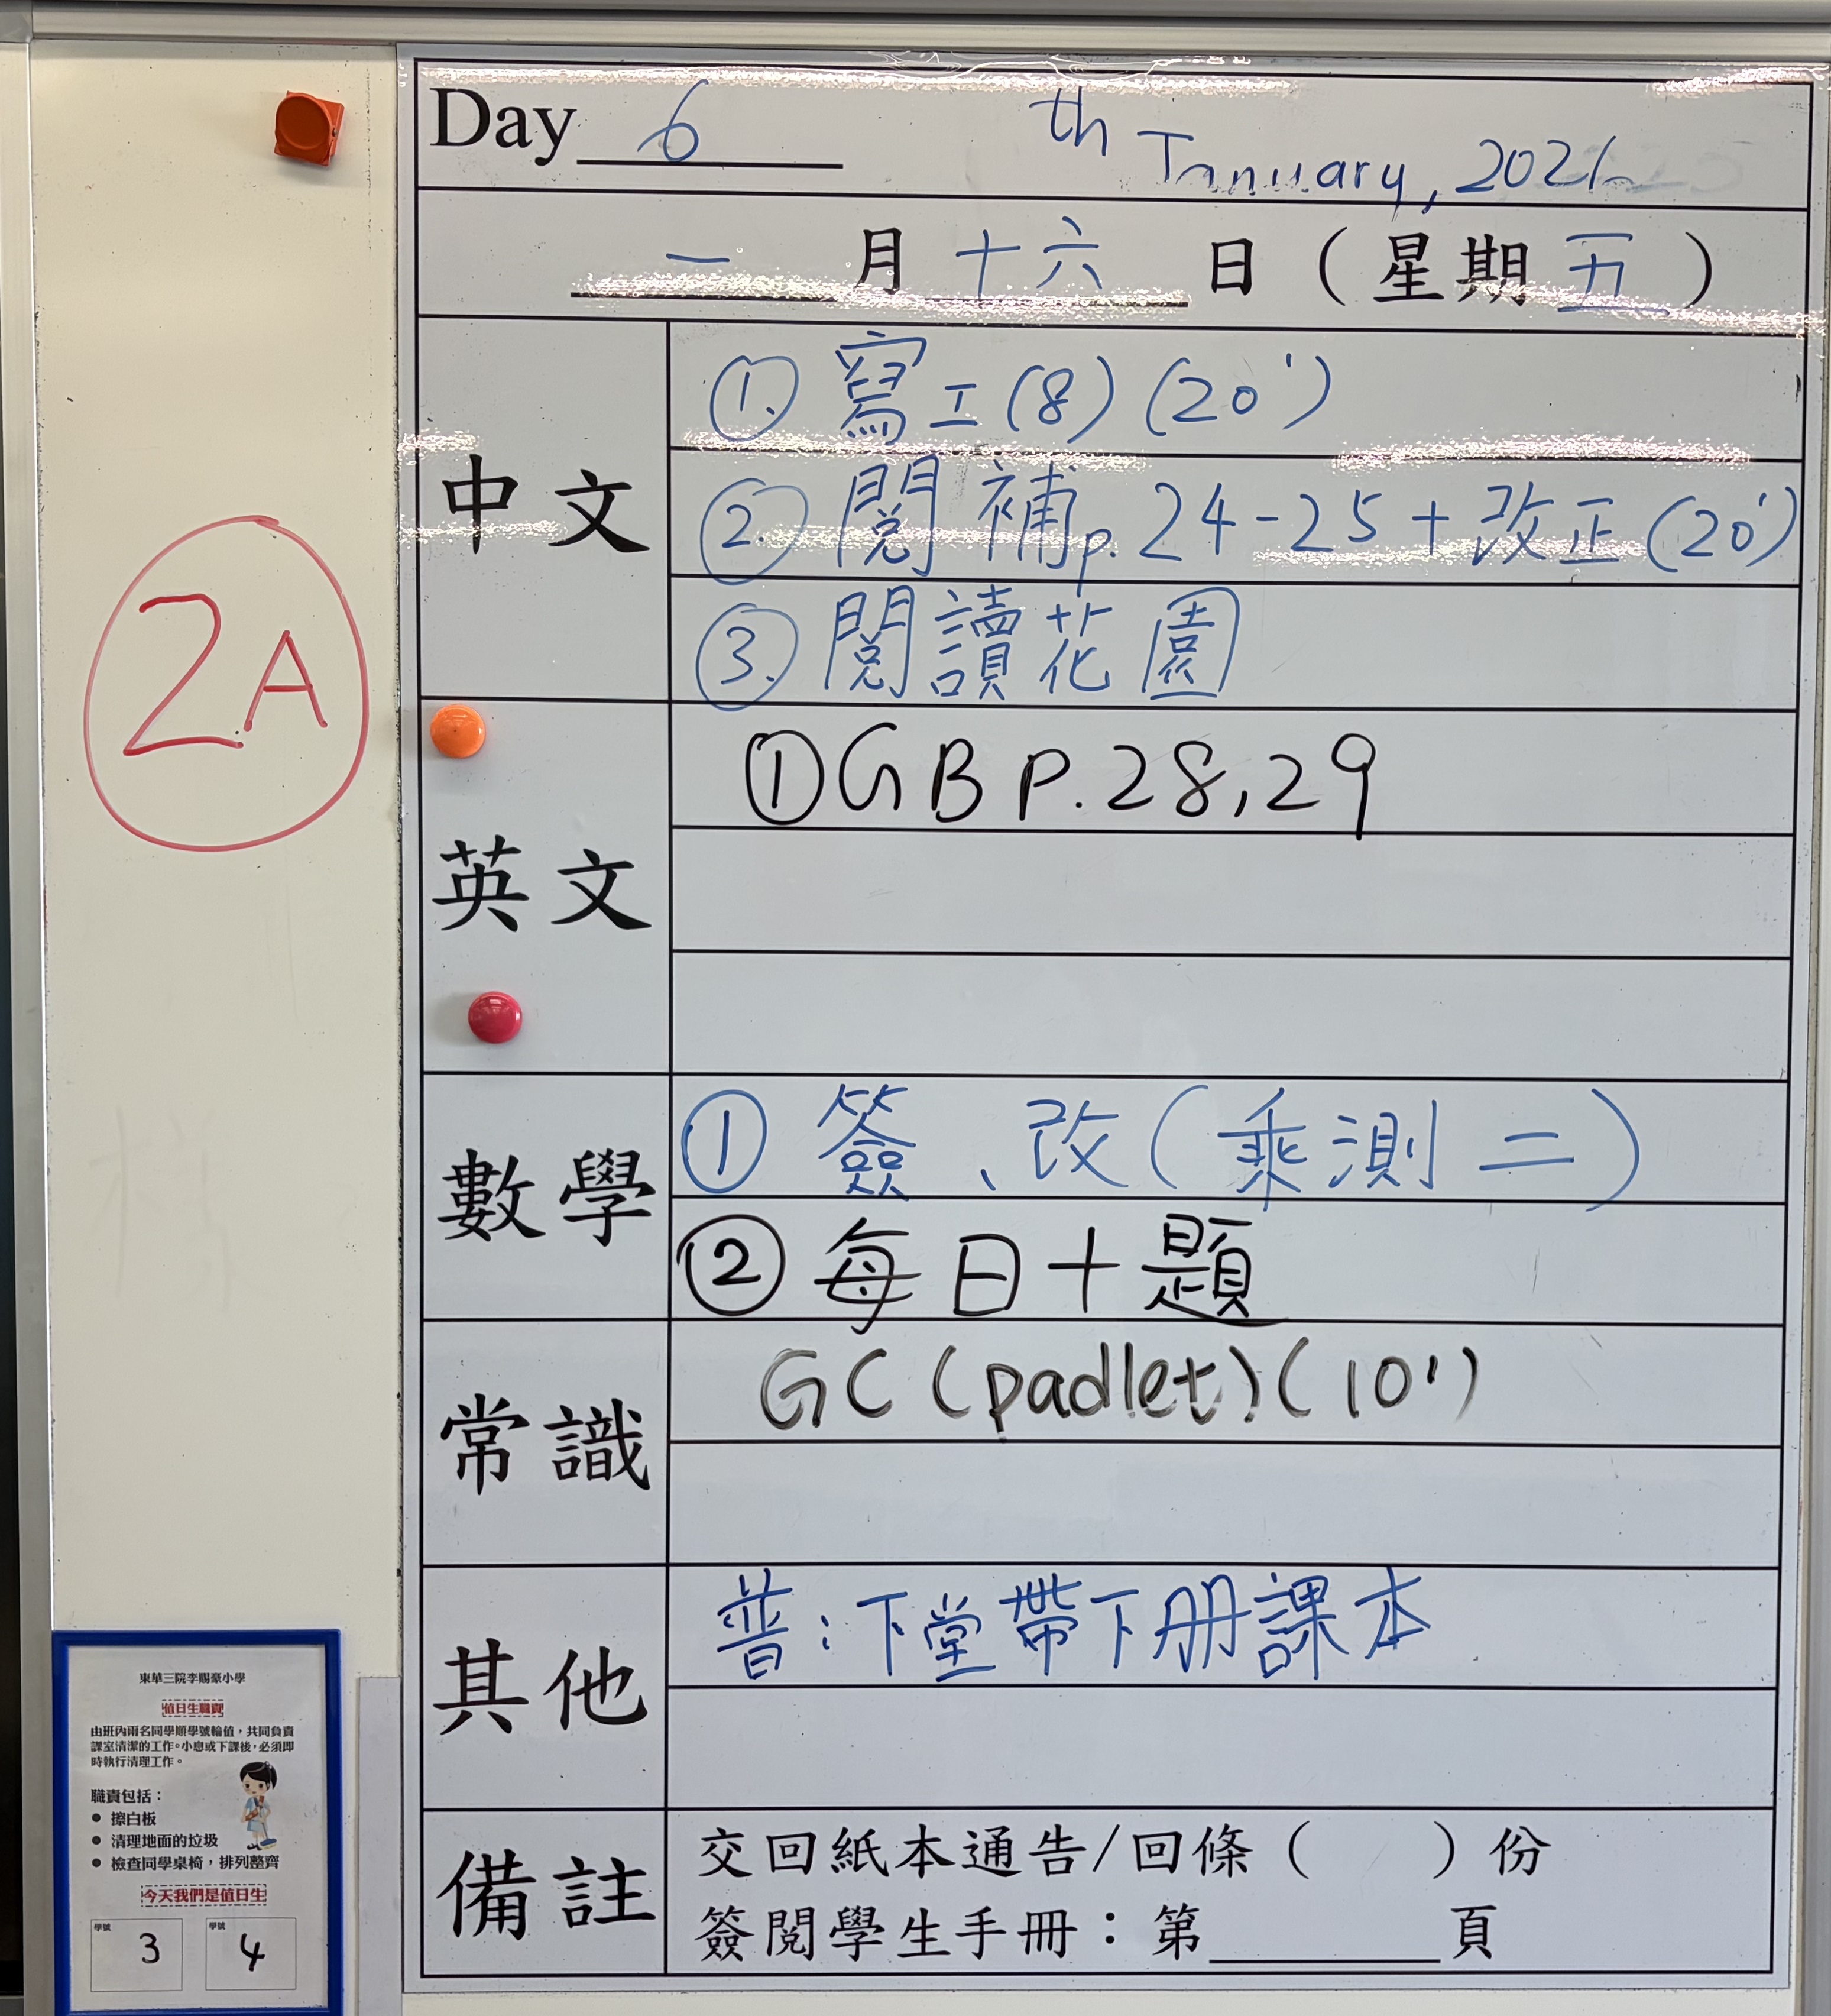 Day 6 th January, 2026
一 月 十六 日 ( 星期 五 )
中文
①. 寫工(8) (20')
②. 閱補p.24-25+改正(20')
③. 閱讀花園
2A
英文
① GB P.28,29
數學
① 簽、改(乘測二)
② 每日十題
常識
GC (padlet) (10')
其他
普:下堂帶下册課本
備註
交回紙本通告/回條( )份
簽閱學生手冊:第______頁
東華三院李賜豪小學
值日生職責
由班內兩名同學順學號輪值,共同負責
課室清潔的工作。小息或下課後,必須即
時執行清理工作。
職責包括:
● 擦白板
● 清理地面的垃圾
● 檢查同學桌椅,排列整齊
今天我們是值日生
學號 3 學號 4